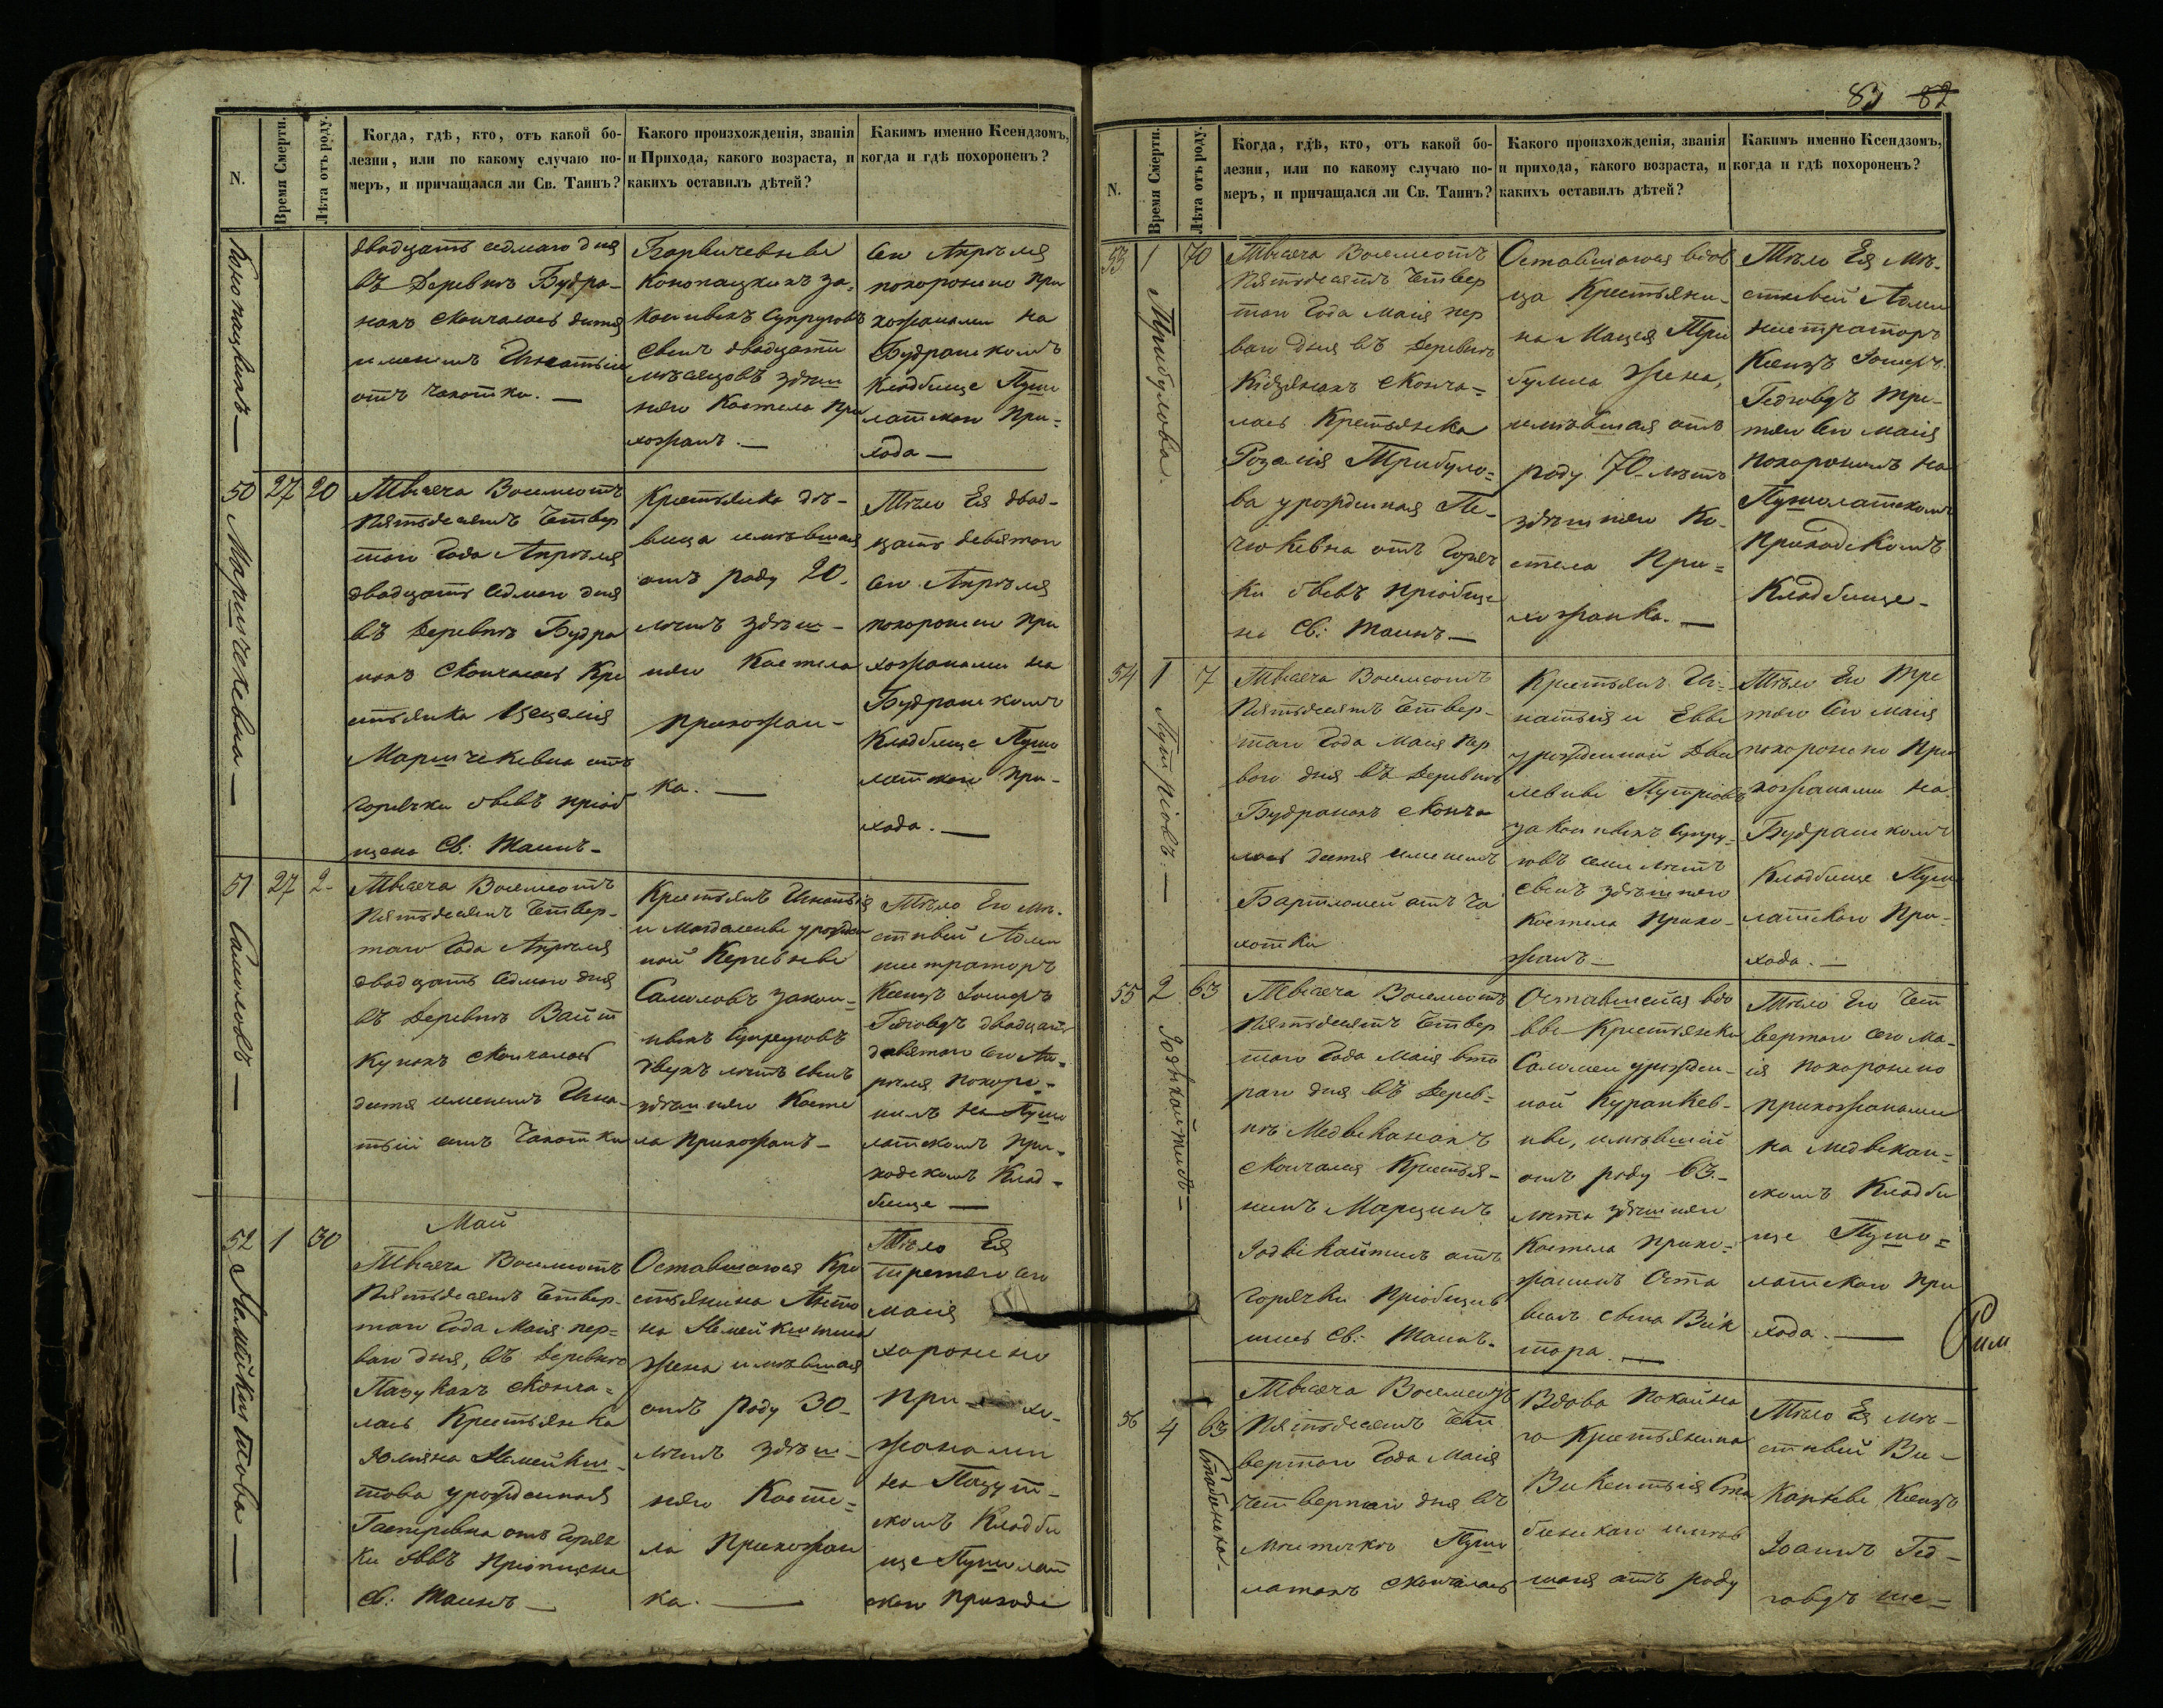 N.
Время Смерти.
Лѣта отъ роду.
Когда, гдѣ, кто, отъ какой бо-
лезни, или по какому случаю по-
меръ, и причащался ли Св. Таинъ?
Какого произхожденія, званія
и Прихода, какого возраста, и
какихъ оставилъ дѣтей?
Какимъ именно Ксендзомъ,
когда и гдѣ похороненъ?
двадцать седмаго дня
въ Деревнѣ Будра-
нахъ скончалось дитя
именемъ Игнатій
отъ чахотки. —
Конопацкихъ за-
конныхъ Супруговъ
сынъ двадцати
мѣсяцовъ здѣш
няго Костела При
хожанъ. —
сго Апрѣля
похоронено При
хожанами на
Будранскомъ
Кладбище Пуша
латскаго При-
хода —
50 27 20
Маришчекевна —
Тысяча Восемсотъ
Пятьдесятъ Четвер
таго Года Апрѣля
двадцать седмаго дня
въ Деревнѣ Будра
нахъ скончалась Кре
стьянка Цецелія
Маришчекевна отъ
горячки бывъ пріоб
щена Св: Таинъ —
Крестьянка дѣ-
вица имѣвшая
отъ роду 20.
лѣтъ здѣш-
няго Костела
прихожан-
ка. —
Тѣло Ея двад-
цать девятаго
сго Апрѣля
похоронено При
хожанами на
Будранскомъ
Кладбище Пуша
латскаго При-
хода. —
51 27 2-
Самоловъ —
Тысяча Восемсотъ
Пятьдесятъ Четвер-
таго Года Апрѣля
двадцать седмаго дня
въ Деревнѣ Вайт
кунахъ скончалось
дитя именемъ Игна-
тій отъ Чахотки
Крестьянъ Игнатія
и Магдалены урожден
ной
Самоловъ закон-
ныхъ Супруговъ
двухъ лѣтъ сынъ
здѣшняго Косте
ла прихожанъ —
Тѣло Его Мѣ-
стный Адми
нистраторъ
Ксендзъ Іосифъ
Гедговдъ двадцать
девятаго сго Ап-
рѣля похоро-
нилъ на Пуша
латскомъ При-
ходскомъ Клад-
бище —
52 1 30
Май
Тысяча Восемсотъ
Пятьдесятъ Четвер-
таго Года Маія пер-
ваго дня, въ Деревнѣ
Пазукахъ сконча-
лась Крестьянка
урожденная
Гасперевна отъ горяч
ки бывъ Пріопщена
Св: Таинъ —
Оставшаяся Кре
стьянина Анто
на
Жена имѣвшая
отъ роду 30-
лѣтъ здѣш-
няго Косте-
ла Прихожан
ка. —
Тѣло Ея
третьяго сго
маія
хоронено
при хо-
жанами
на
скомъ Кладби
ще Пушалат
скаго Прихода
83 82
N.
Время Смерти.
Лѣта отъ роду.
Когда, гдѣ, кто, отъ какой бо-
лезни, или по какому случаю по-
меръ, и причащался ли Св. Таинъ?
Какого произхожденія, званія
и прихода, какого возраста, и
какихъ оставилъ дѣтей?
Какимъ именно Ксендзомъ,
когда и гдѣ похороненъ?
53 1 70
Трибулова.
Тысяча Восемсотъ
Пятьдесятъ Четвер
таго Года Маія пер
ваго Дня въ Деревнѣ
сконча-
лась Крестьянка
Розалія Трибуло-
ва урожденная Пе-
чюкевна отъ Горяч
ки бывъ пріобще
на Св: Таинъ —
Оставшаяся вдов
ца Крестьяни-
на Мацея Три
булиса Жена,
имѣвшая отъ
роду 70 лѣтъ
здѣшняго Ко-
стела При-
хожанка. —
Тѣло Ея Мѣ-
стный Адми
нистраторъ
Ксендзъ Іосифъ
Гедговдъ тре-
тяго сго маія
похоронилъ на
Пушолатскомъ
Приходскомъ
Кладбище —
54 1 7
Тысяча Восемсотъ
Пятьдесятъ Четвер-
таго Года Маія пер
ваго дня въ Деревнѣ
Будранахъ сконча
лось дитя именемъ
Бартломей отъ Ча
хотки
Крестьянъ Иг-
натыя и Евы
урожденной
законныхъ Супру-
говъ семи лѣтъ
сынъ здѣшняго
Костела Прихо-
жанъ —
Тѣло Его Тре
тяго сго Маія
похоронено При
хожанами на
Будранскомъ
Кладбище Пуша
латскаго При-
хода. —
55 2 63
Тысяча Восемсотъ
Пятьдесятъ Четвер
таго Года Маія вто
раго дня въ Дерев-
нѣ Медвеканахъ
скончался Крестья-
нинъ Марцинъ
отъ
горячки Пріобщив
шись Св: Таинъ.
Оставшейся вдо
вы Крестьянки
Саломеи урожден-
ной Куранкев-
ны, имѣвшій
отъ роду 63.-
лѣта здѣшняго
Костела Прихо-
жанинъ Оста
вилъ сына Вик
тора. —
Тѣло Его Чет
вертаго сго Ма-
ія похоронено
прихожанами
на медвекан-
скомъ Кладби
ще Пуша-
латскаго При
хода. —
56 4 63
Тысяча Восемсотъ
Пятьдесятъ Чет
вертаго Года Маія
четвертаго дня въ
Мѣстечкѣ Пуша
латахъ скончалась
Вдова покойна
го Крестьянина
Викентыя Ста
бинскаго имѣв
шая отъ роду
Тѣло Ея Мѣ-
стный Ви-
карный Ксендзъ
Іоаннъ Гед-
говдъ ше-